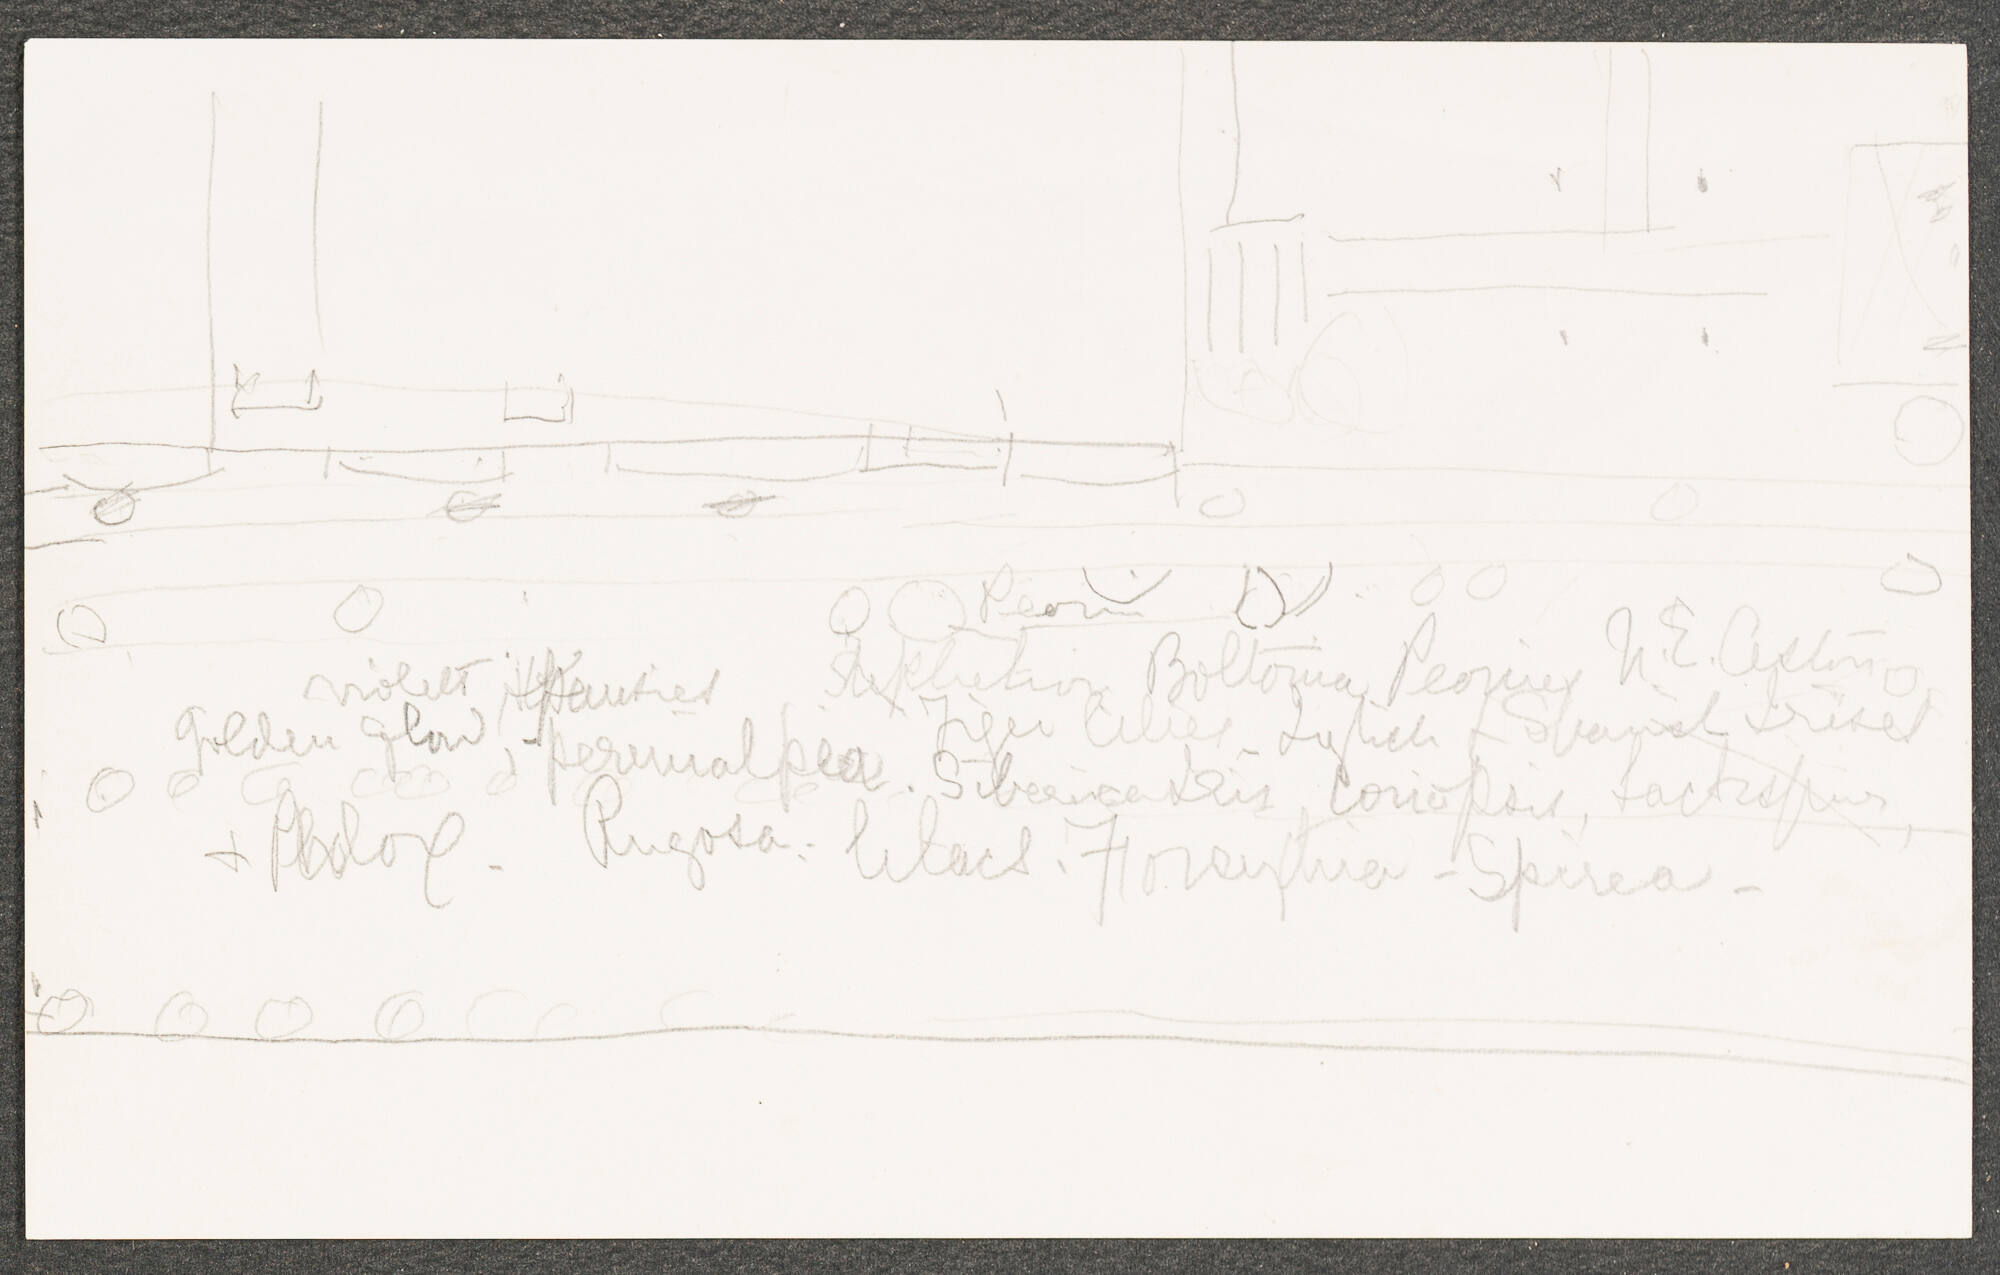 Peonie
violets, Pansies Delphinium Boltonia, Peonies N.E. Astors
golden glow, - perenial pea. Tiger lilies - English + Spanish Irises
Siberica Iris, Coriopsis, Larkspur,
+ Phlox - Rugosa. lilacs. Forsythia - Spirea -